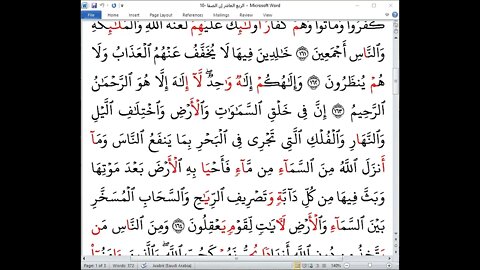 الربع العاشر إلى الصفا -10 - Microsoft Word
File Home Insert Page Layout References Mailings Review View
كَفَرُوا۟ وَمَاتُوا۟ وَهُمْ كُفَّارٌ أُو۟لَٰٓئِكَ عَلَيْهِمْ لَعْنَةُ ٱللَّهِ وَٱلْمَلَٰٓئِكَةِ
وَٱلنَّاسِ أَجْمَعِينَ ١٦١ خَٰلِدِينَ فِيهَا لَا يُخَفَّفُ عَنْهُمُ ٱلْعَذَابُ وَلَا
هُمْ يُنظَرُونَ ١٦٢ وَإِلَٰهُكُمْ إِلَٰهٌ وَٰحِدٌ لَّآ إِلَٰهَ إِلَّا هُوَ ٱلرَّحْمَٰنُ
ٱلرَّحِيمُ ١٦٣ إِنَّ فِى خَلْقِ ٱلسَّمَٰوَٰتِ وَٱلْأَرْضِ وَٱخْتِلَٰفِ ٱلَّيْلِ
وَٱلنَّهَارِ وَٱلْفُلْكِ ٱلَّتِى تَجْرِى فِى ٱلْبَحْرِ بِمَا يَنفَعُ ٱلنَّاسَ وَمَآ
أَنزَلَ ٱللَّهُ مِنَ ٱلسَّمَآءِ مِن مَّآءٍ فَأَحْيَا بِهِ ٱلْأَرْضَ بَعْدَ مَوْتِهَا
وَبَثَّ فِيهَا مِن كُلِّ دَآبَّةٍ وَتَصْرِيفِ ٱلرِّيَٰحِ وَٱلسَّحَابِ ٱلْمُسَخَّرِ
بَيْنَ ٱلسَّمَآءِ وَٱلْأَرْضِ لَءَايَٰتٍ لِّقَوْمٍ يَعْقِلُونَ ١٦٤ وَمِنَ ٱلنَّاسِ مَن
Page: 1 of 3 Words: 372 Arabic (Saudi Arabia) 140%